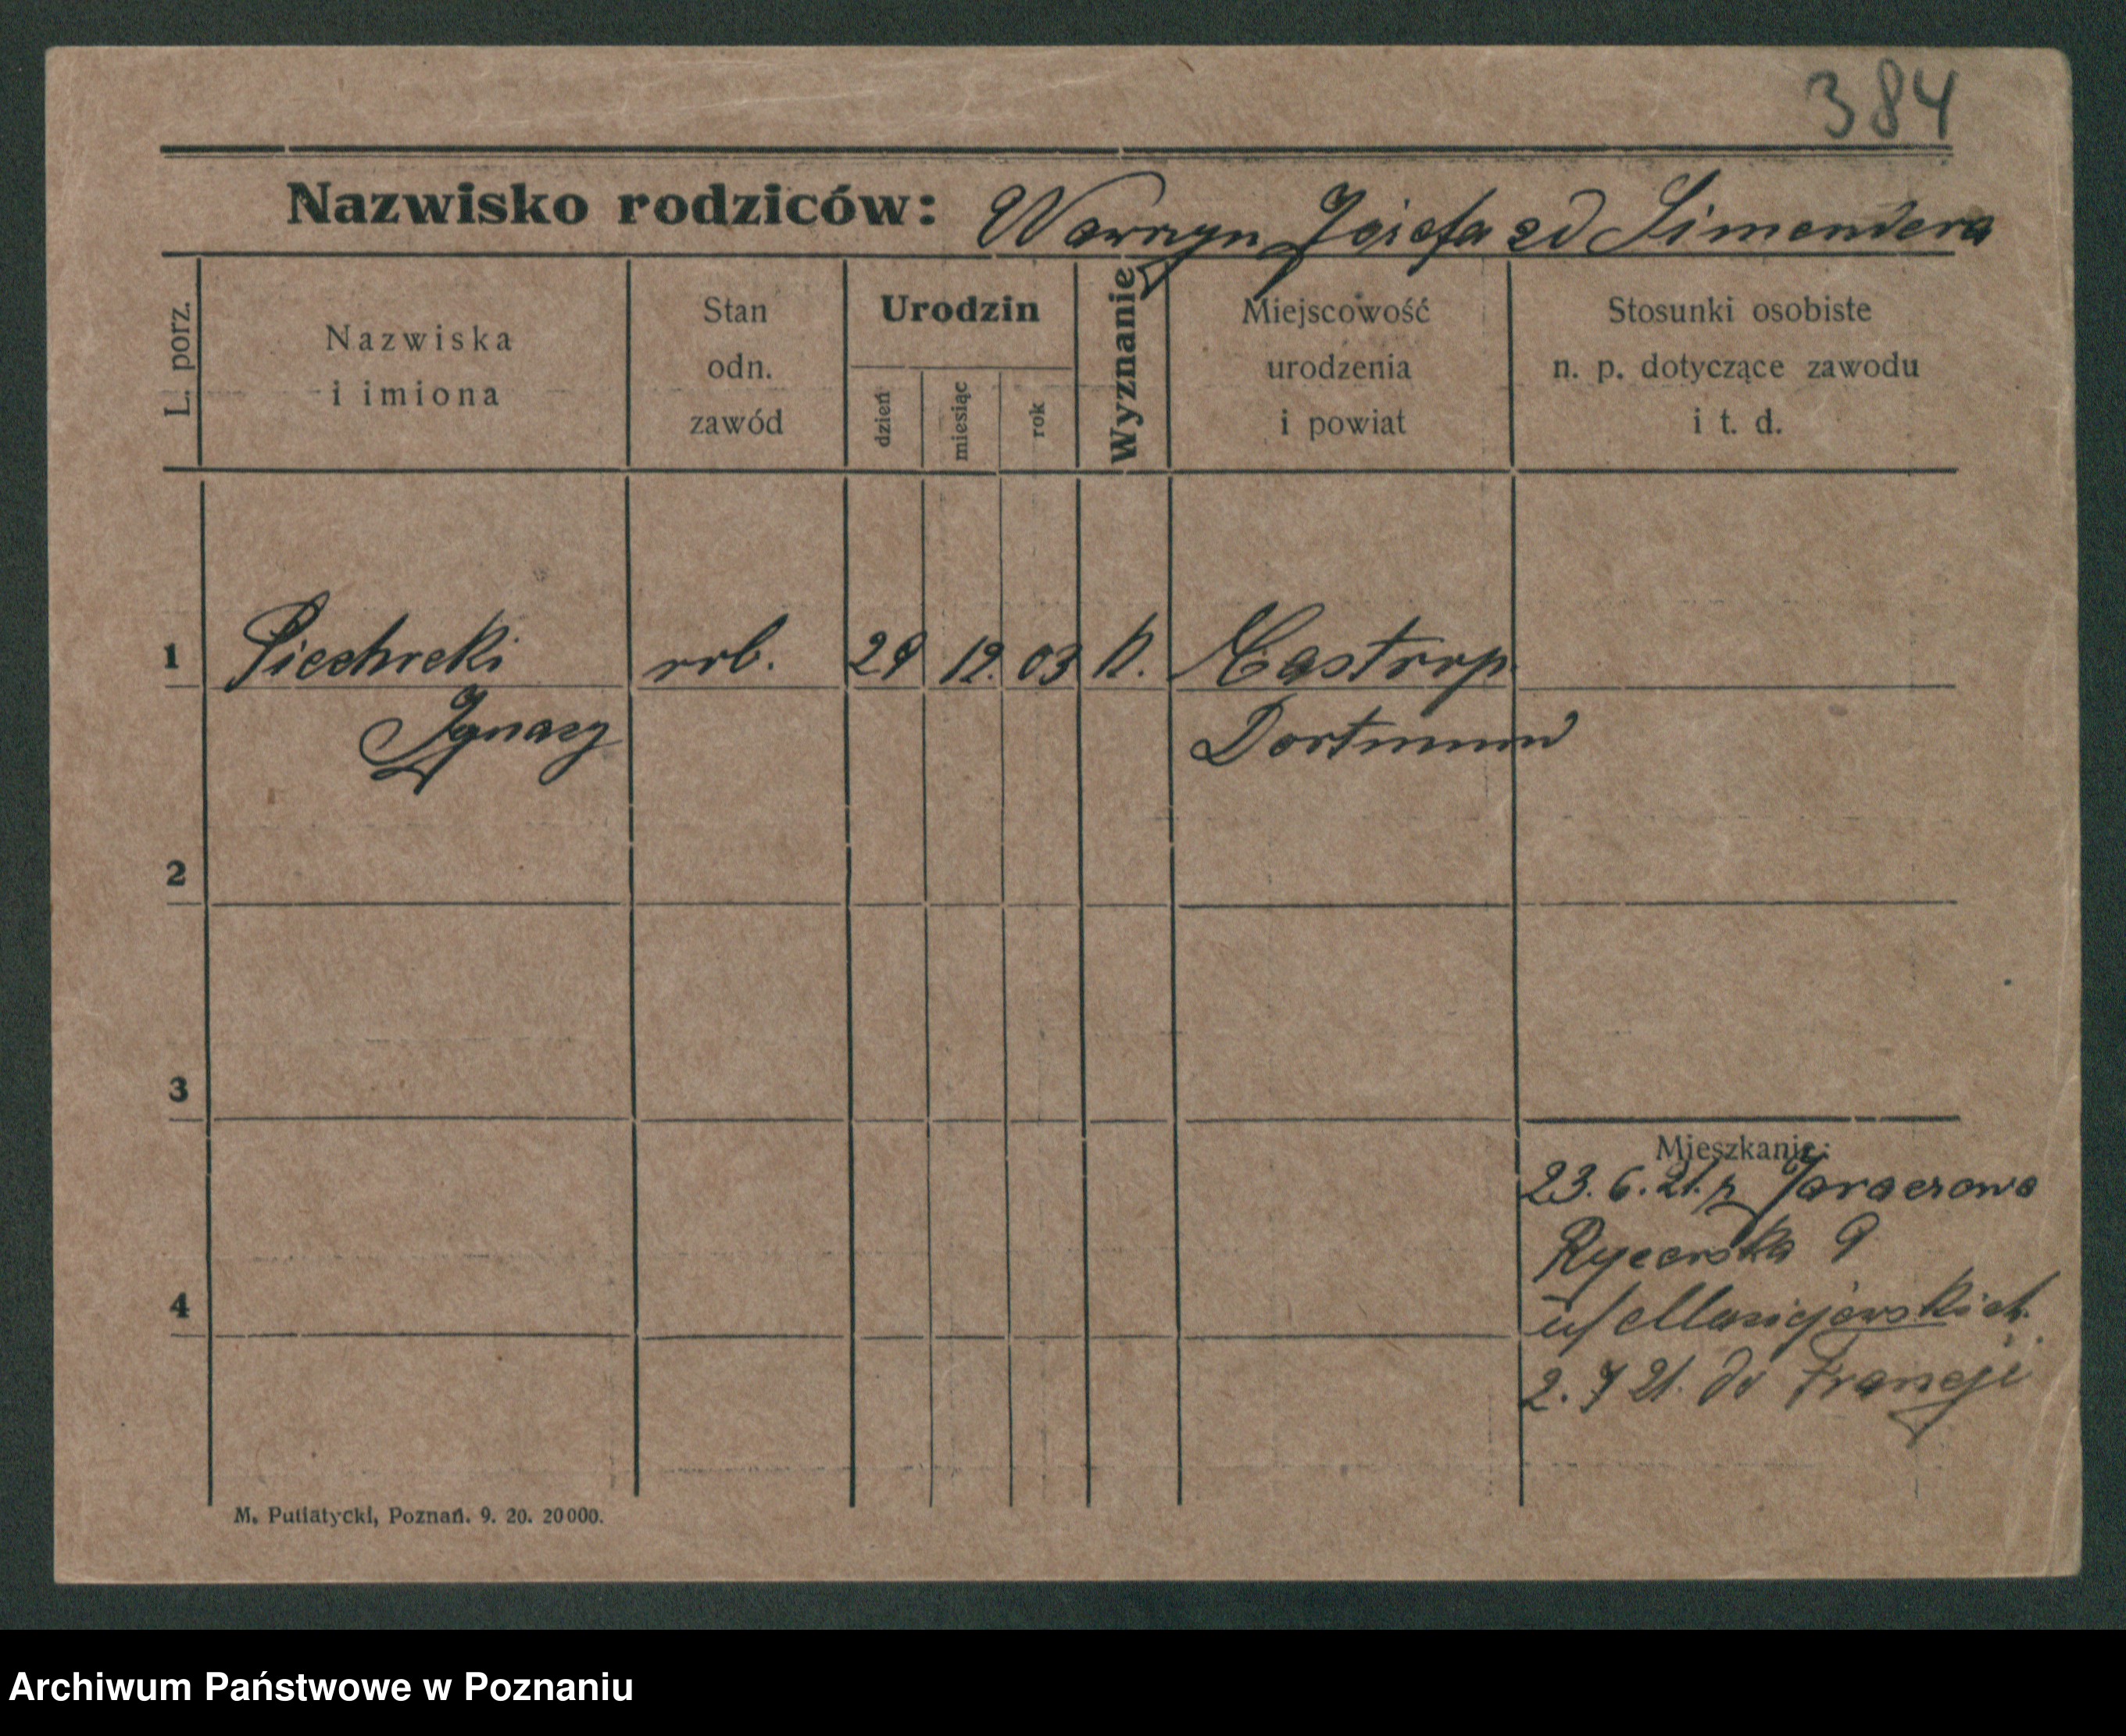 384
Nazwisko rodziców: Wawrzyn Józefa zd Simendera
L. porz.
Nazwiska
i imiona
Stan
odn.
zawód
Urodzin
dzień
miesiąc
rok
Wyznanie
Miejscowość
urodzenia
i powiat
Stosunki osobiste
n. p. dotyczące zawodu
i t. d.
1 Piechocki rob. 29 12. 03 k. Castrop.
Ignacy Dortmund
2
3
Mieszkanie:
23. 6. 21. z Jaraczewa
Rycerska 9
u/ Maciejewskich.
4
2. 7 21. do Francji
M. Putiatycki, Poznań. 9. 20. 20000.
Archiwum Państwowe w Poznaniu